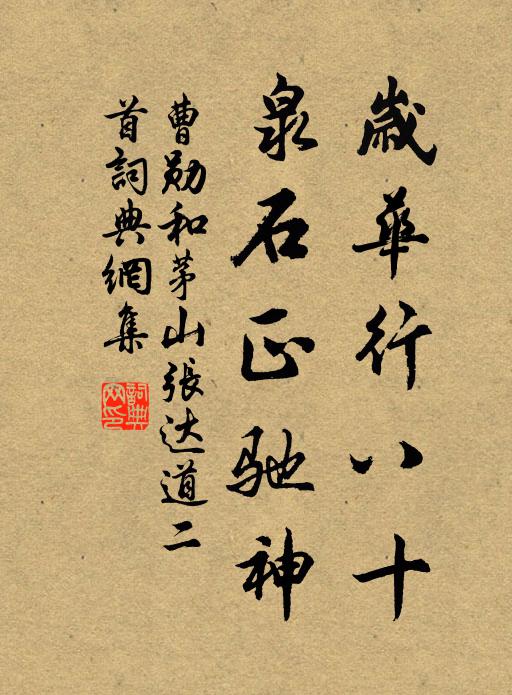 歲華行八十
泉石正馳神
曹勛和茅山張达道二
首詞典網集
詞典
网印